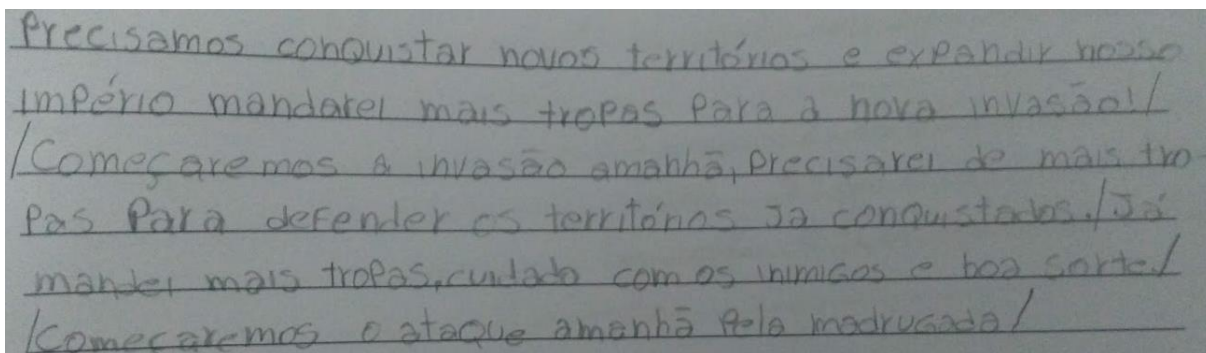 Precisamos conquistar novos territórios e expandir nosso
império mandarei mais tropas para a nova invasão!/
/Começaremos a invasão amanhã, precisarei de mais tro
pas para defender os territórios já conquistados./Já
mandei mais tropas, cuidado com os inimigos e boa sorte!
/Começaremos o ataque amanhã pela madrugada/